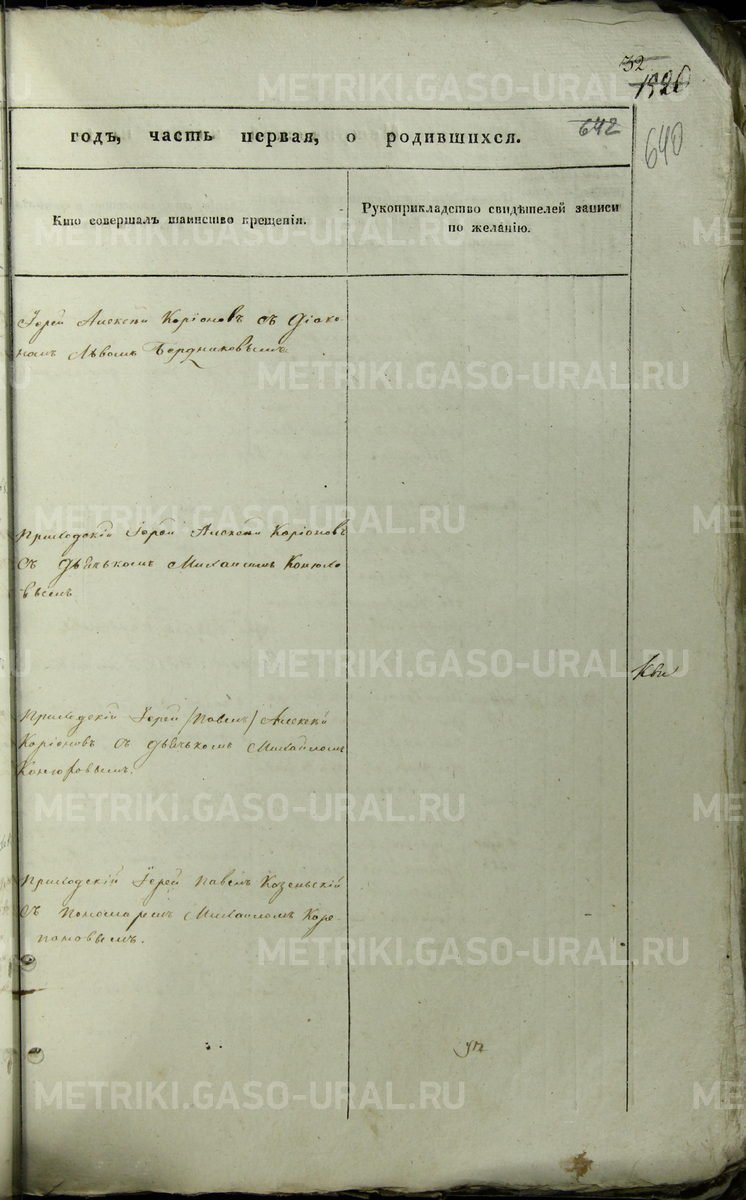 32
1320
годъ, часть первая, о родившихся.
642
640
Кто совершалъ таинство крещенія.
Рукоприкладство свидѣтелей записи
по желанію.
Іерей Алексѣй Каріоновъ съ Діако
номъ Львомъ Бердниковымъ
Приходскій Іерей Алексѣй Каріоновъ
съ дьячькомъ Михаиломъ Конюхо
вымъ
Приходскій Іерей /Павелъ/ Алексѣй
Каріоновъ съ дьячькомъ Михайломъ
Конюховымъ.
Приходскій Іерей Павелъ Козельскій
съ Пономаремъ Михаиломъ Каре
пановымъ.
METRIKI.GASO-URAL.RU